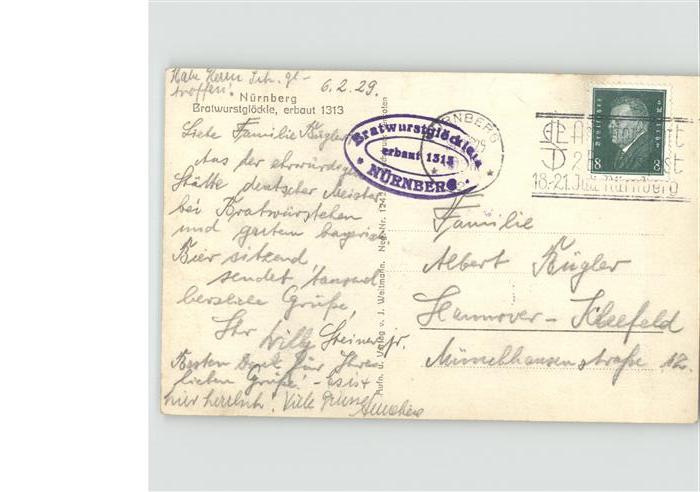 Habe Herrn Sch. ge-
troffen!
6.2.29.
Nürnberg
Bratwurstglöckle, erbaut 1313
Liebe Familie Kügler
Aus der ehrwürdigen
Stätte deutscher Meister
bei Bratwürstchen
und gutem bayerisch
Bier sitzend
sendet tausend
herzliche Grüße,
Ihr Willy Steiner jr.
Besten Dank für Ihre
lieben Grüße! - es ist
hier herrlich. Viele Grüsse
Aufn. u. Verlag v. J. Weitmann.
Bratwurstglöcklein
erbaut 1313
NÜRNBERG
NÜRNBERG
18.-21. Juli Nürnberg
Deutsches
8 8
Familie
Albert Kügler
Hannover - Kleefeld
Münchhausenstraße